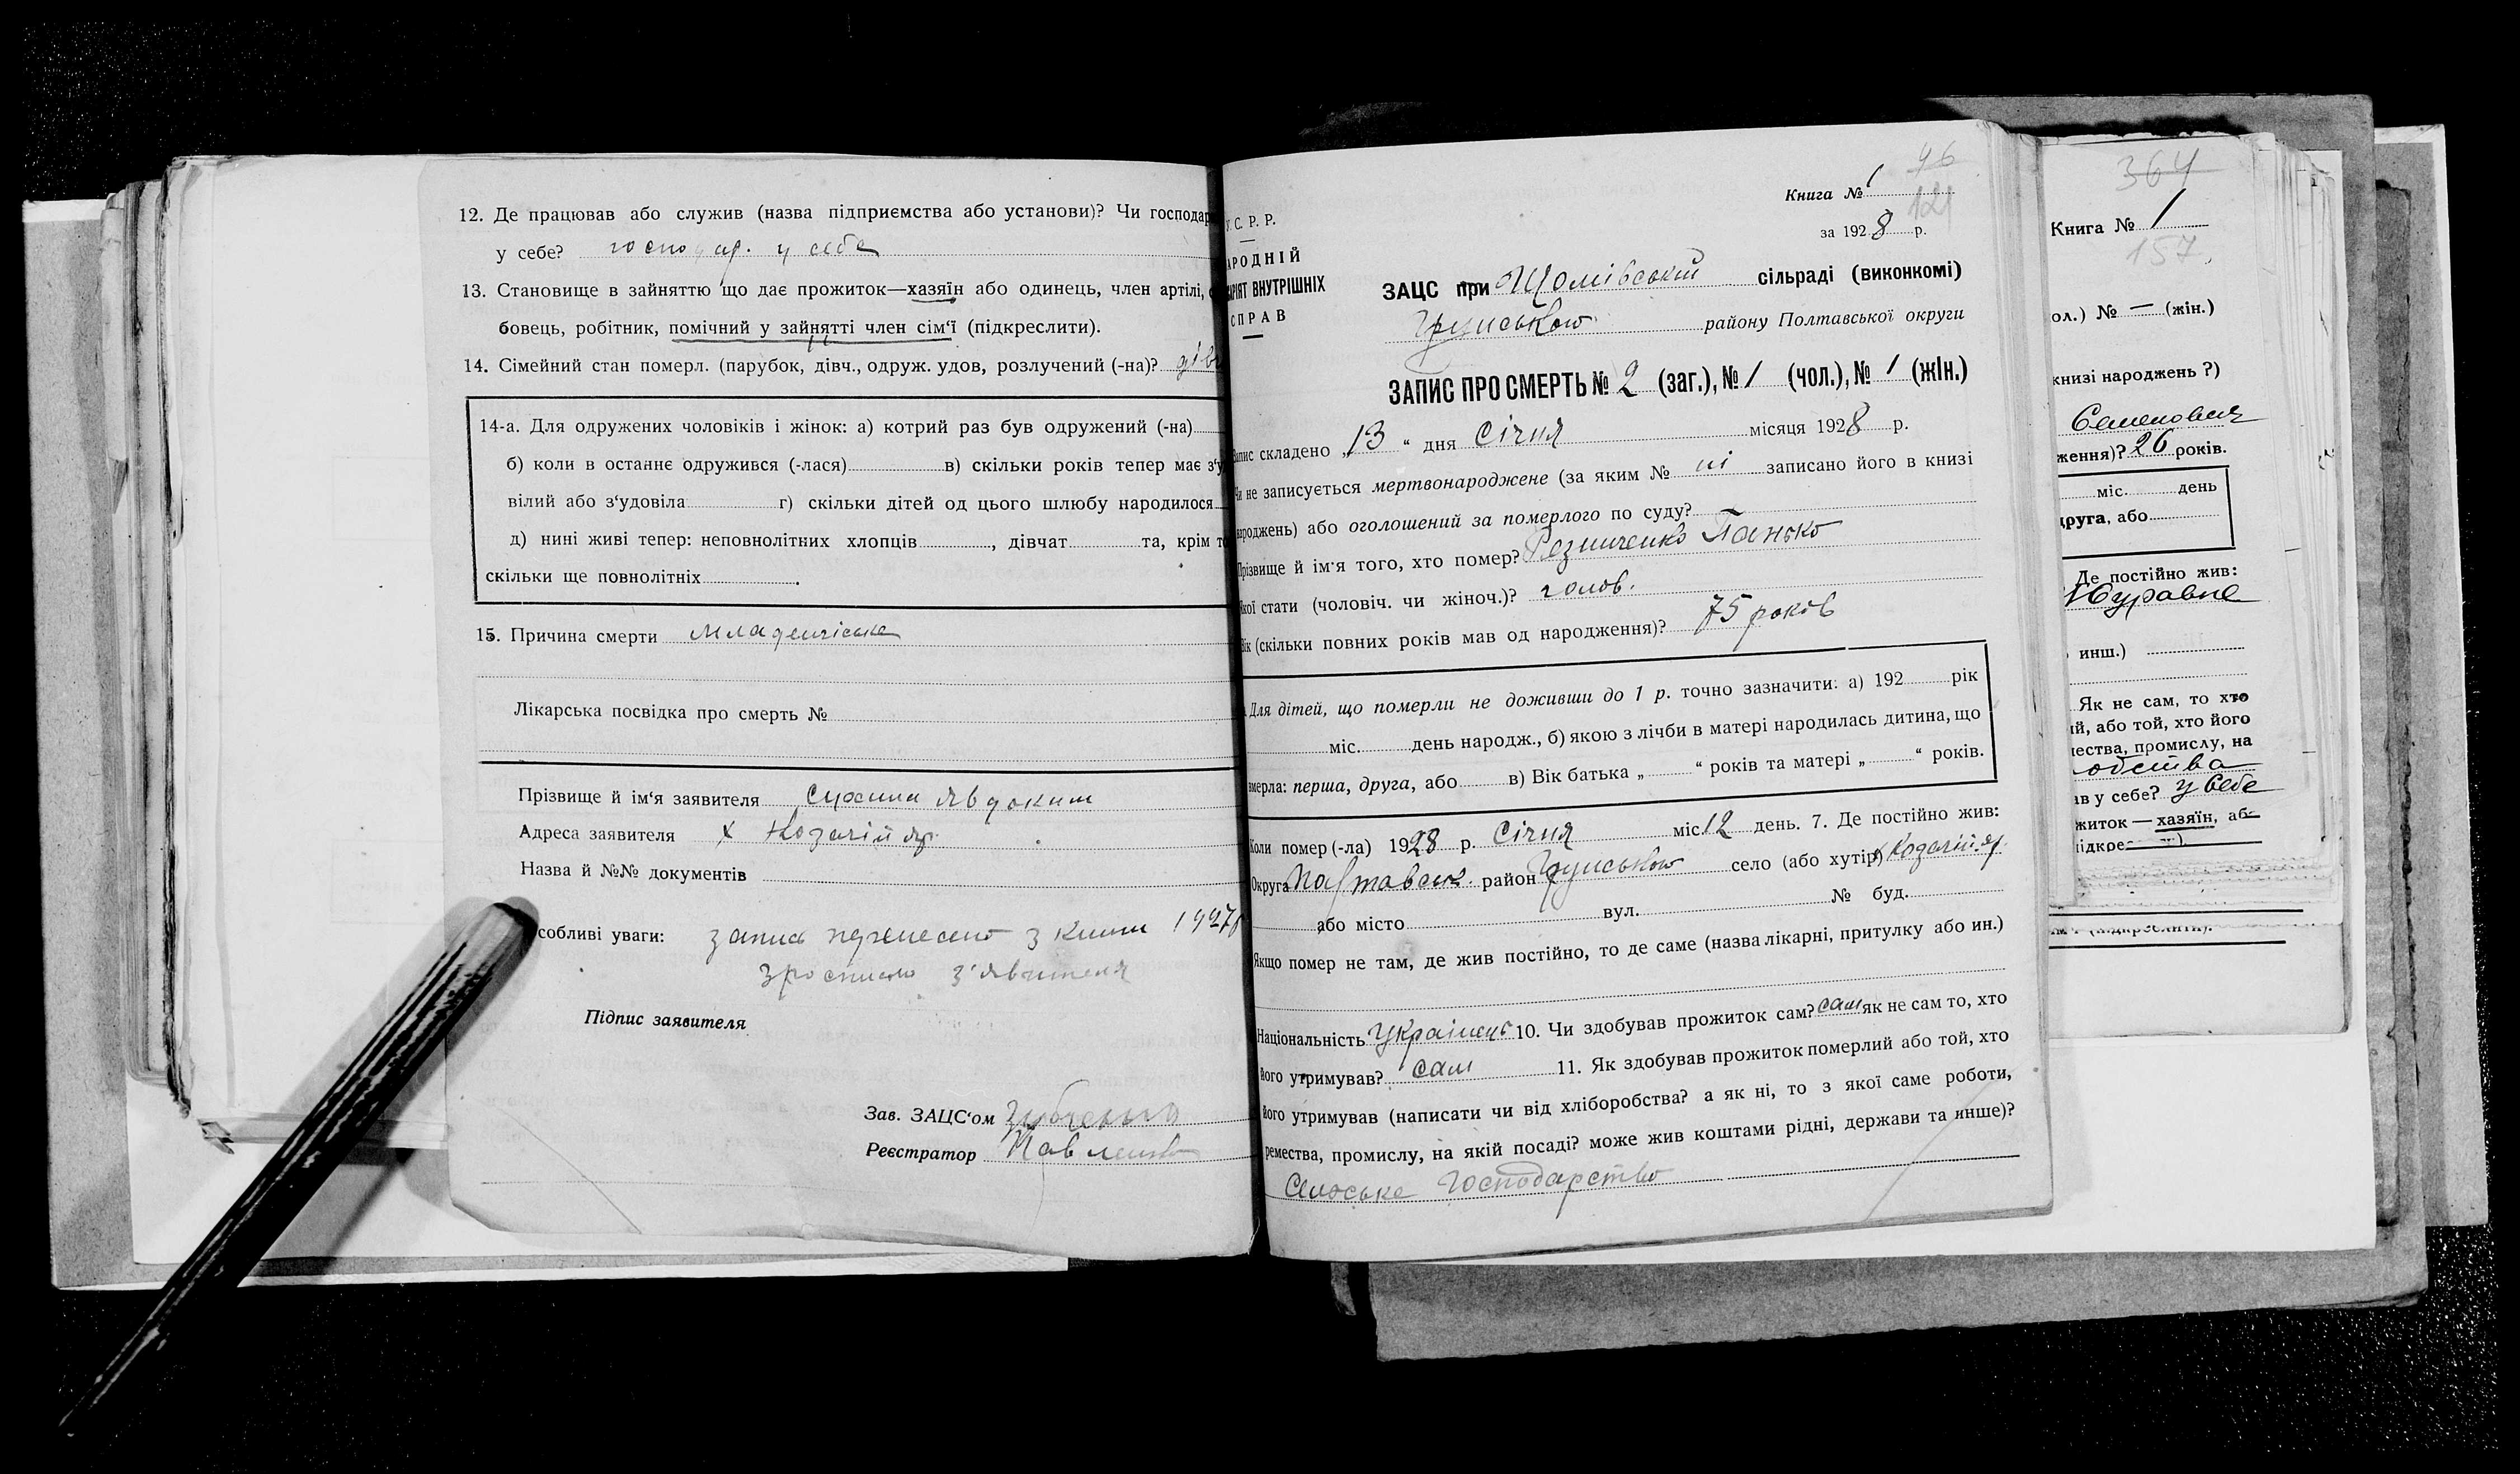 12. Де працював або служив (назва підприємства або установи)? Чи господар
у себе? господар. у себе
13. Становище в зайняттю що дає прожиток—хазяїн або одинець, член артілі,
бовець, робітник, помічний у зайнятті член сім'ї (підкреслити).
14. Сімейний стан померл. (парубок, дівч., одруж. удов, розлучений (-на)? дівч
14-а. Для одружених чоловіків і жінок: а) котрий раз був одружений (-на)
б) коли в останнє одружився (-лася) в) скільки років тепер має з'у
вілий або з'удовіла г) скільки дітей од цього шлюбу народилося
д) нині живі тепер: неповнолітних хлопців , дівчат та, крім то
скільки ще повнолітніх .
15. Причина смерти младенчіська
Лікарська посвідка про смерть №
Прізвище й ім'я заявителя Явдоким
Адреса заявителя х Козачій яр.
Назва й №№ документів
собливі уваги: запис перенесено з книги 1927р
з'явителя
Підпис заявителя
Зав. ЗАЦС'ом Зубченко
Реєстратор Павленко
У.С.Р.Р.
АРОДНІЙ
АРІЯТ ВНУТРІШНІХ
СПРАВ
96
Книга № 1
121
за 1928 р.
ЗАЦС при сільраді (виконкомі)
району Полтавської округи
ЗАПИС ПРО СМЕРТЬ № 2 (заг.), № 1 (чол.), № 1 (жін.)
Запис складено „13“ дня Січня місяця 1928 р.
Чи не записується мертвонароджене (за яким № ні записано його в книзі
народжень) або оголошений за померлого по суду?
Прізвище й ім'я того, хто помер? Резниченко Панько
якої стати (чоловіч. чи жіноч.)? чолов.
Вік (скільки повних років мав од народження)? 75 років
Для дітей, що померли не доживши до 1 р. точно зазначити: а) 192 рік
міс. день народж., б) якою з лічби в матері народилась дитина, що
вмерла: перша, друга, або в) Вік батька „ “ років та матері „ “ років.
Коли помер (-ла) 1928 р. Січня міс 12 день. 7. Де постійно жив:
Округа Полтавськ. район село (або хутір) х Козачій яр.
або місто вул. № буд.
Якщо помер не там, де жив постійно, то де саме (назва лікарні, притулку або ин.)
Національність Українець 10. Чи здобував прожиток сам? сам як не сам то, хто
його утримував? сам 11. Як здобував прожиток померлий або той, хто
його утримував (написати чи від хліборобства? а як ні, то з якої саме роботи,
ремества, промислу, на якій посаді? може жив коштами рідні, держави та инше)?
Сельське господарство
364
Книга № 1
157.
ол.) № — (жін.)
книзі народжень ?)
Семенович
ження)? 26 років.
міс. день
друга, або
Де постійно жив:
Журавне
инш.)
Як не сам, то хто
ий, або той, хто його
ества, промислу, на
обства
ав у себе? у себе
житок — хазяїн, аб
підкре